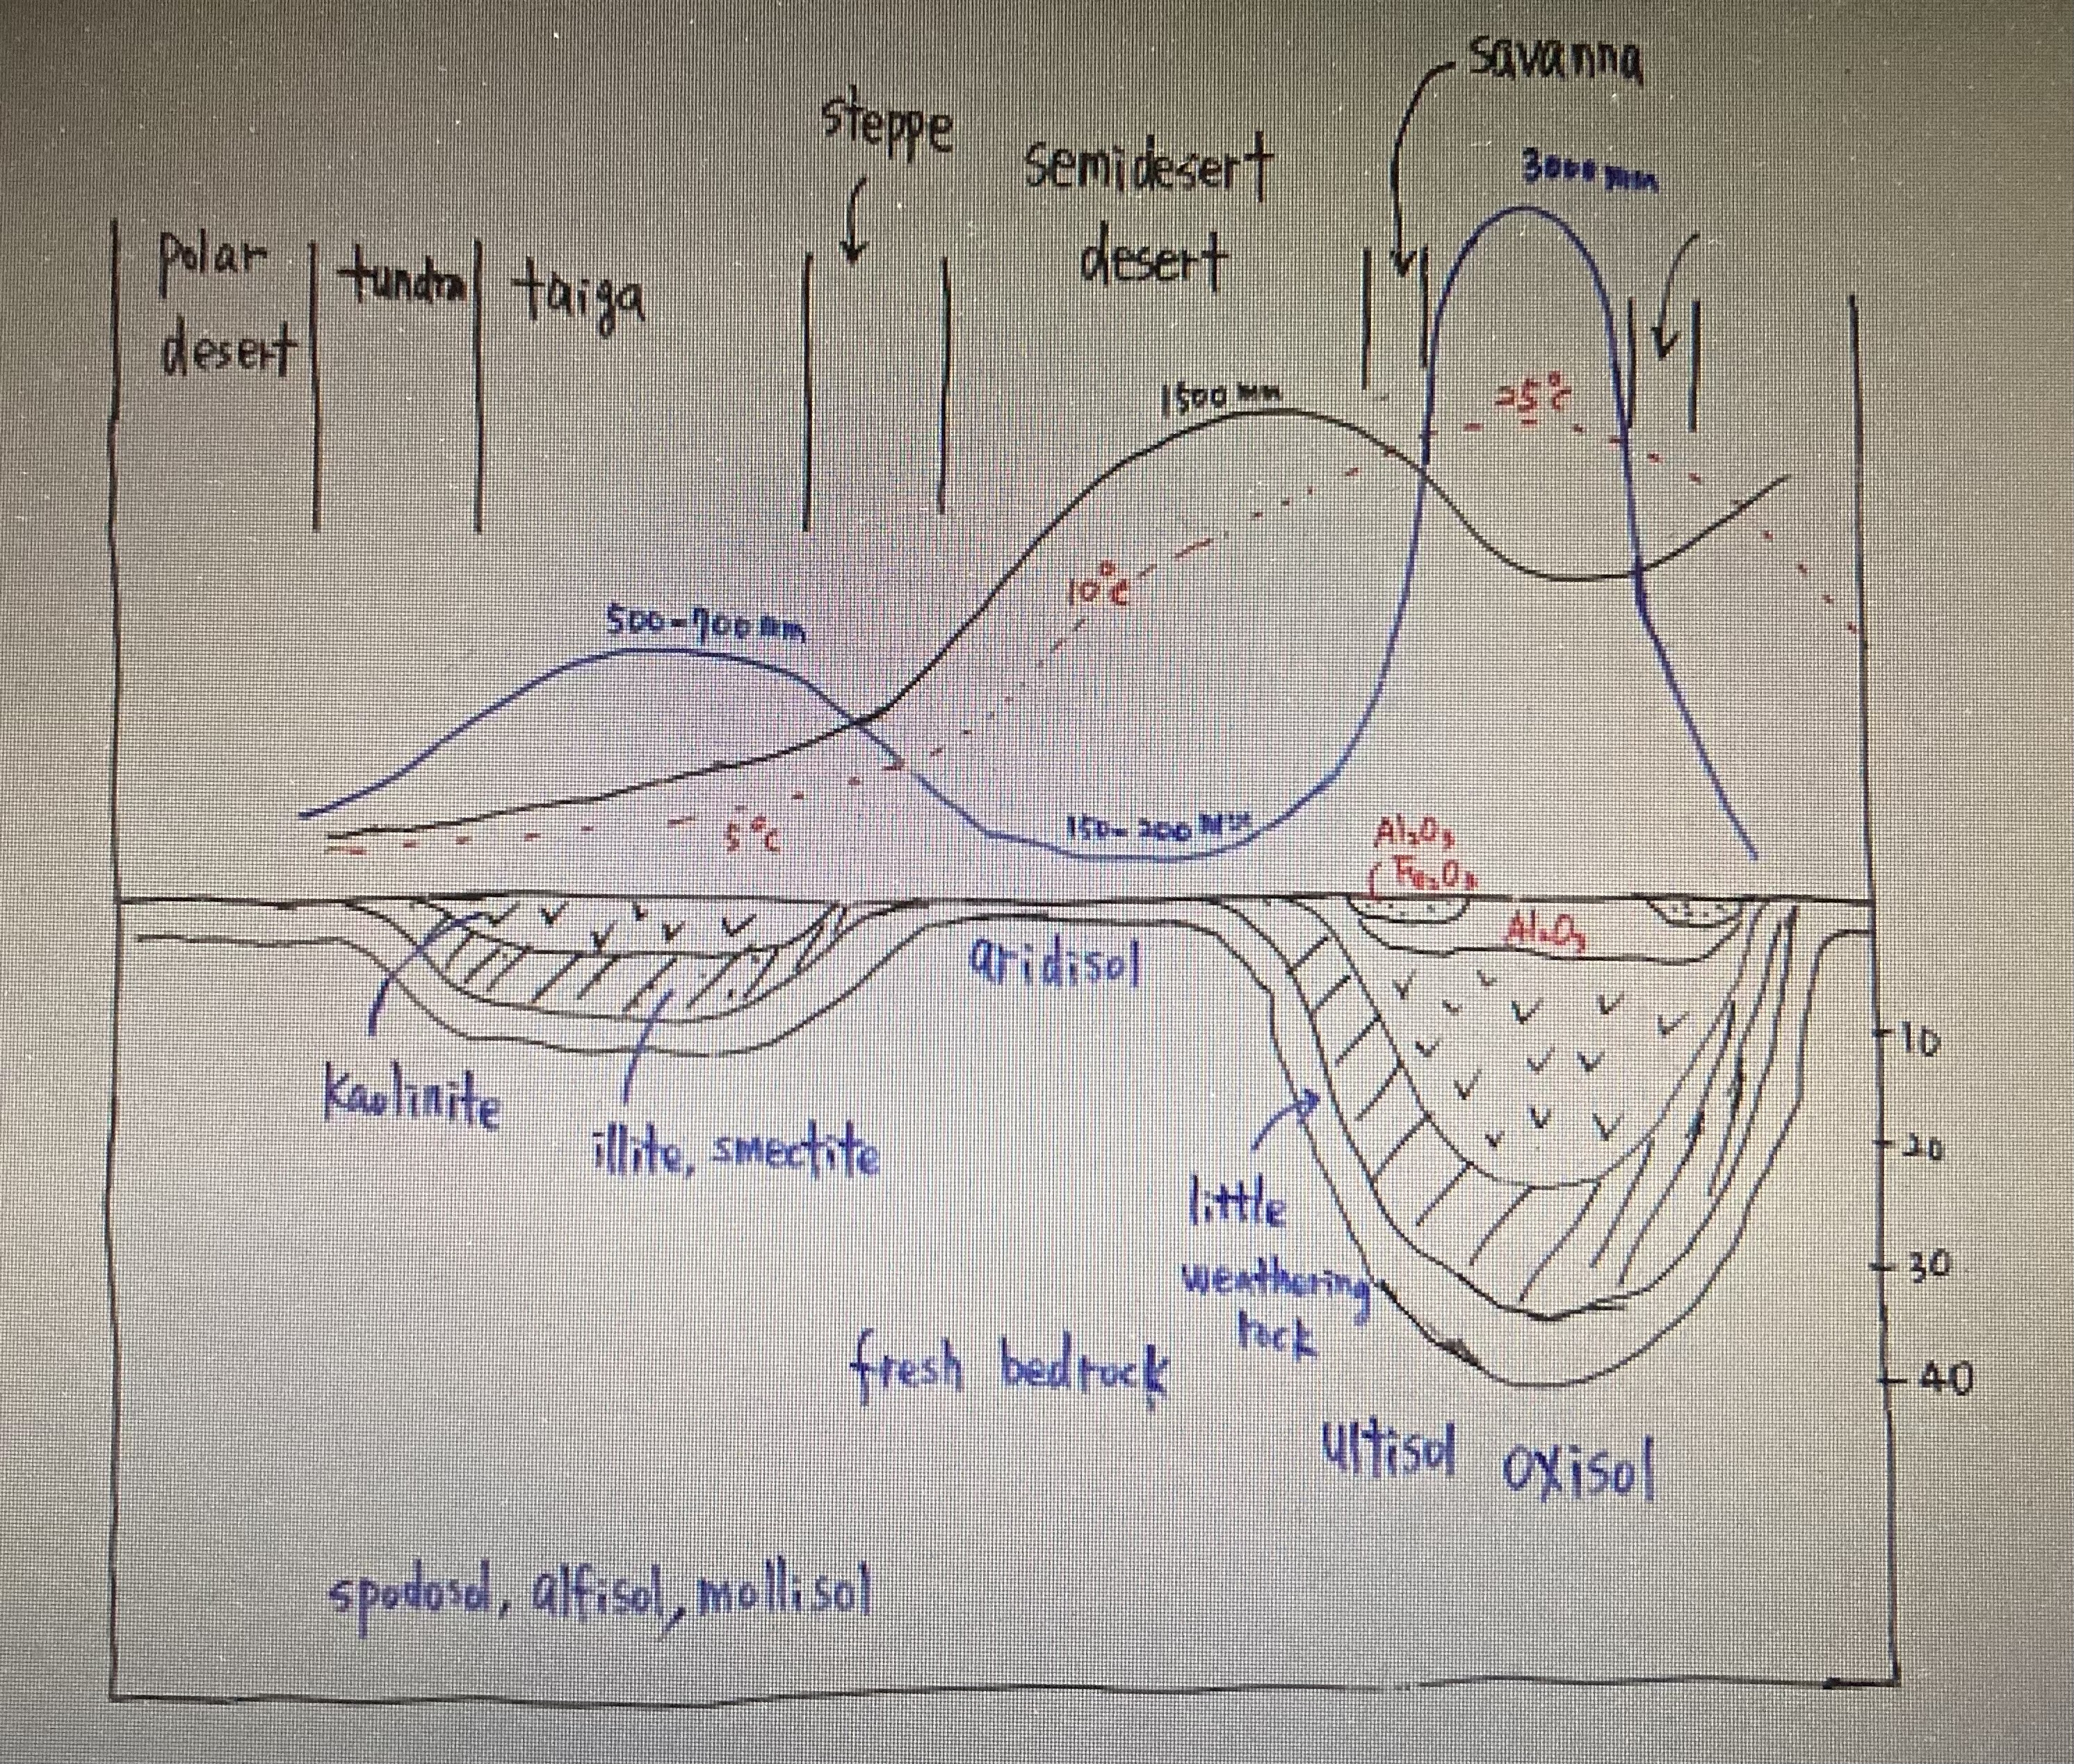 savanna
steppe
semidesert
desert
3000 mm
polar
desert
tundra
taiga
1500 mm
25°C
10°C
500-700 mm
5°C
150-200 mm
Al₂O₃
Fe₂O₃
Al₂O₃
aridisol
10
kaolinite
illite, smectite
20
little
weathering
rock
30
fresh bedrock
40
ultisol oxisol
spodosol, alfisol, mollisol